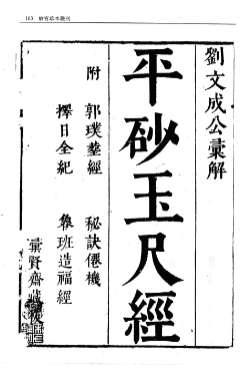 163 故宮珍本叢刊
劉文成公彙解
平砂玉尺經
附 郭璞葬經 秘訣僊機
擇日全紀 魯班造福經
彙賢齋藏板